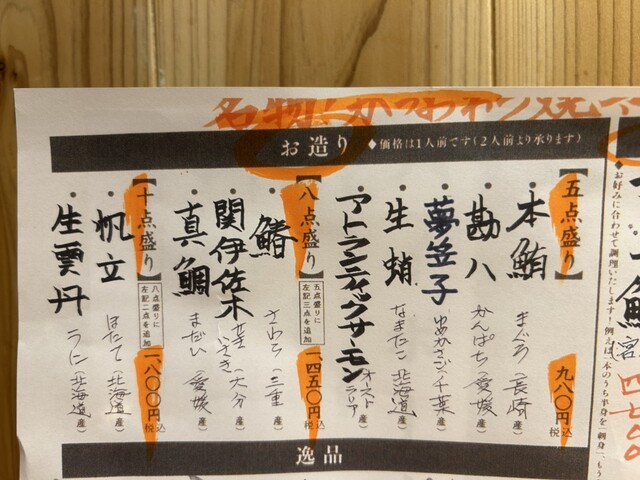 名物!かつおわら焼
お造り ◆価格は1人前です(2人前より承ります)
【五点盛り】
九八〇円 税込
・本鮪 まぐろ(長崎産)
・勘八 かんぱち(愛媛産)
・夢笠子 ゆめかさご(千葉産)
・生蛸 なまたこ(北海道産)
・アトランティックサーモン オーストラリア
【八点盛り】
五点盛りに
左記三点を追加
一、四五〇円 税込
・鰆 さわら(三重産)
・関伊佐木 いさき(大分産)
・真鯛 まだい(愛媛産)
【十点盛り】
八点盛りに
左記二点を追加
一、八〇〇円 税込
・帆立 ほたて(北海道産)
・生雲丹 うに(北海道産)
逸品
お好みに合わせて調理いたします!